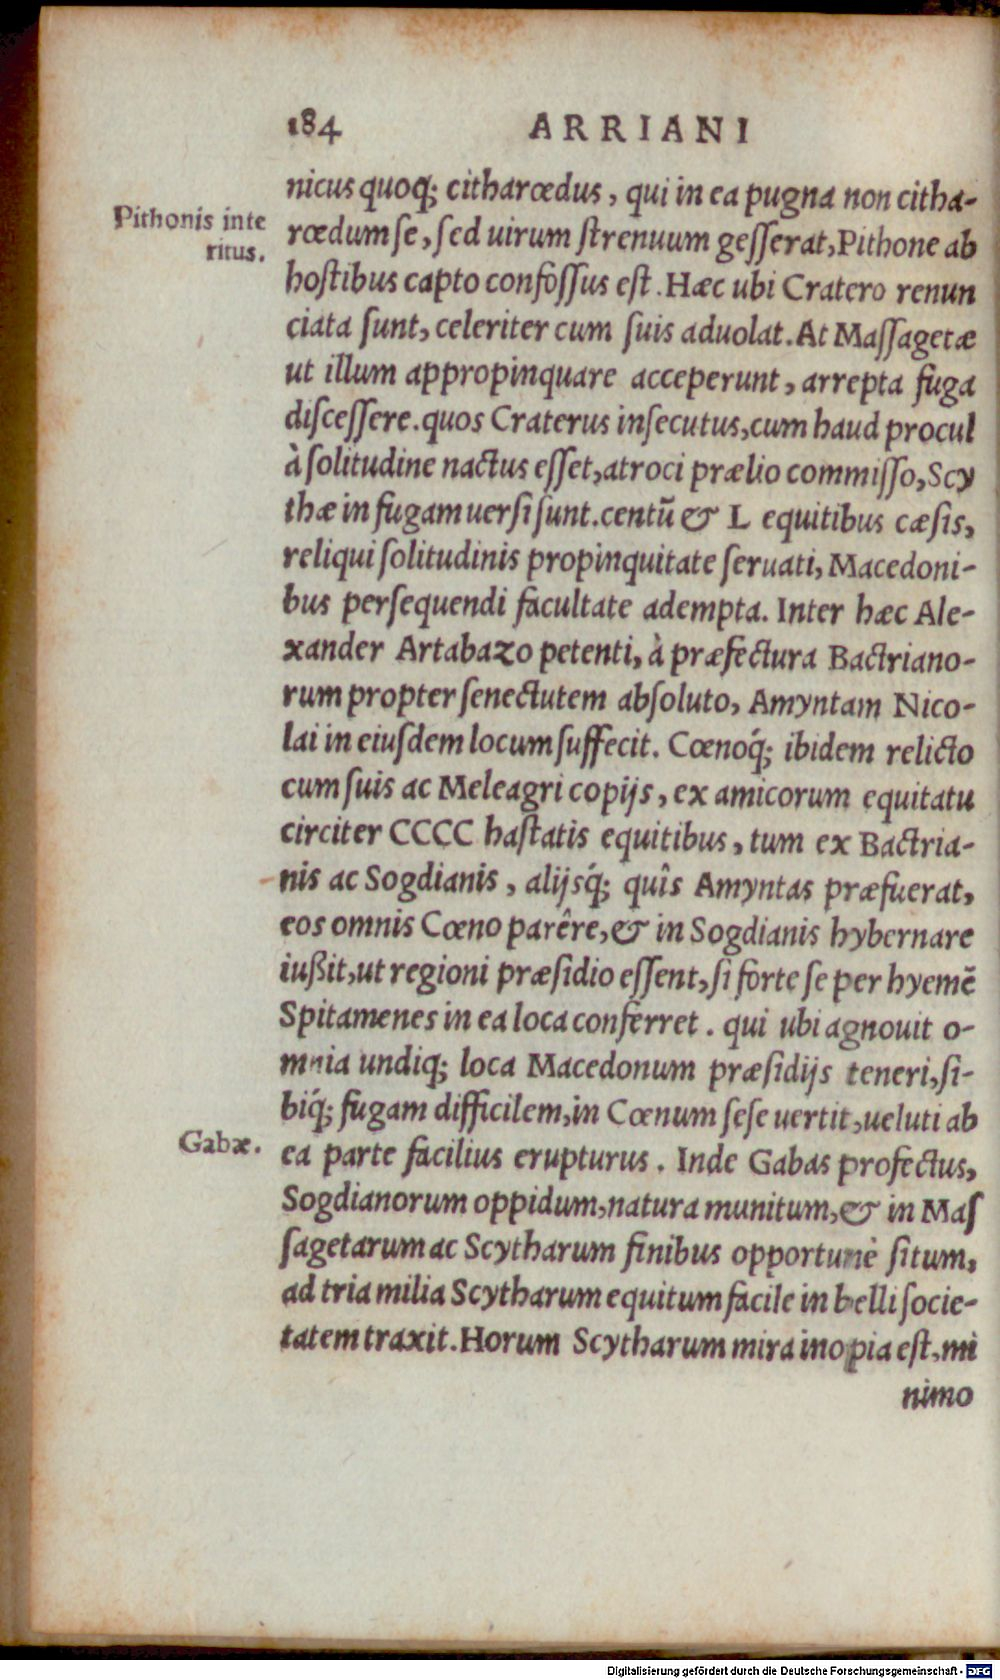 184 ARRIANI
nicus quoq; citharœdus, qui in ea pugna non citha-
Pithonis inte
ritus.
rœdum se, sed uirum strenuum gesserat, Pithone ab
hostibus capto confossus est. Hæc ubi Cratero renun
ciata sunt, celeriter cum suis aduolat. At Massagetæ
ut illum appropinquare acceperunt, arrepta fuga
discessere. quos Craterus insecutus, cum haud procul
à solitudine nactus esset, atroci prælio commisso, Scy
thæ in fugam uersi sunt. centū & L equitibus cæsis,
reliqui solitudinis propinquitate seruati, Macedoni-
bus persequendi facultate adempta. Inter hæc Ale-
xander Artabazo petenti, à præfectura Bactriano-
rum propter senectutem absoluto, Amyntam Nico-
lai in eiusdem locum suffecit. Cœnoq́; ibidem relicto
cum suis ac Meleagri copijs, ex amicorum equitatu
circiter CCCC hastatis equitibus, tum ex Bactria-
nis ac Sogdianis, alijsq́; quîs Amyntas præfuerat,
eos omnis Cœno parêre, & in Sogdianis hybernare
iußit, ut regioni præsidio essent, si forte se per hyemē
Spitamenes in ea loca conferret. qui ubi agnouit o-
mnia undiq; loca Macedonum præsidijs teneri, si-
biq́; fugam difficilem, in Cœnum sese uertit, ueluti ab
Gabæ.
ea parte facilius erupturus. Inde Gabas profectus,
Sogdianorum oppidum, natura munitum, & in Mas
sagetarum ac Scytharum finibus opportunè situm,
ad tria milia Scytharum equitum facile in belli socie-
tatem traxit. Horum Scytharum mira inopia est, mi
nimo
Digitalisierung gefördert durch die Deutsche Forschungsgemeinschaft - DFG